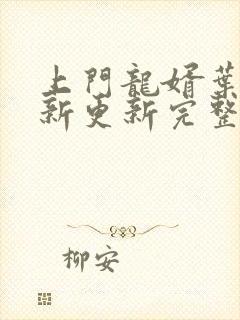 上門龍婿葉
新更新完整
柳安